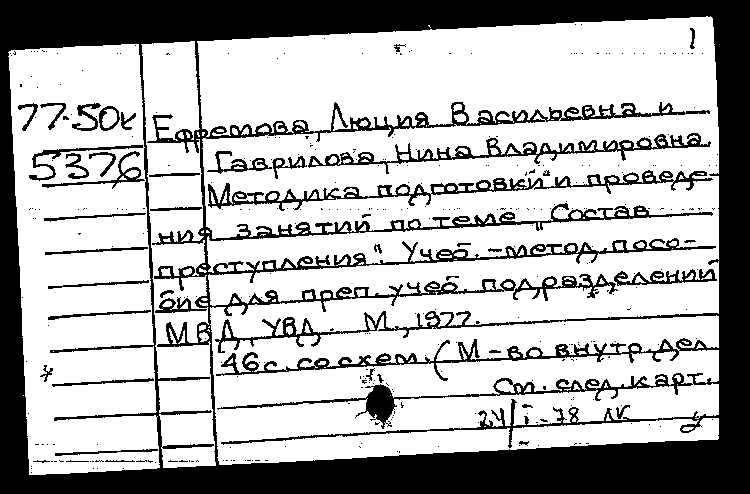 1
77-50к
5376
Ефремова, Люция Васильевна и
Гаврилова, Нина Владимировна.
Методика подготовки и проведе-
ния занятий по теме „Состав
преступления". Учеб.-метод. посо-
бие для преп. учеб. подразделений
МВД, УВД. М., 1977.
46 с. со схем. (М-во внутр. дел.
См. след. карт.
24/I-78 ЛК